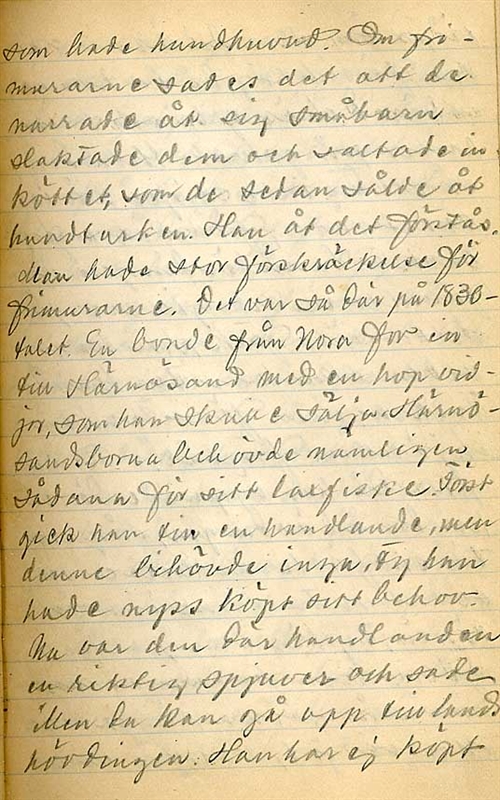 som hade hundhuvud. Om fri-
murarne sades det att de
narrade åt sig småbarn
slaktade dem och saltade in
köttet, som de sedan sålde åt
hundturken. Han åt det förstås.
Man hade stor förskräckelse för
frimurarne. Det var så där på 1830-
talet. En bonde från Nora for in
till Härnösand med en hop vid-
jor, som han skulle sälja. Härnö-
sandsborna behövde nämligen
sådana för sitt laxfiske. Först
gick han till en handlande, men
denne behövde inga, ty han
hade nyss köpt sitt behov.
Nu var den där handlanden
en riktig spjuver och sade
Men du kan gå upp till lands
hövdingen. Han har ej köpt